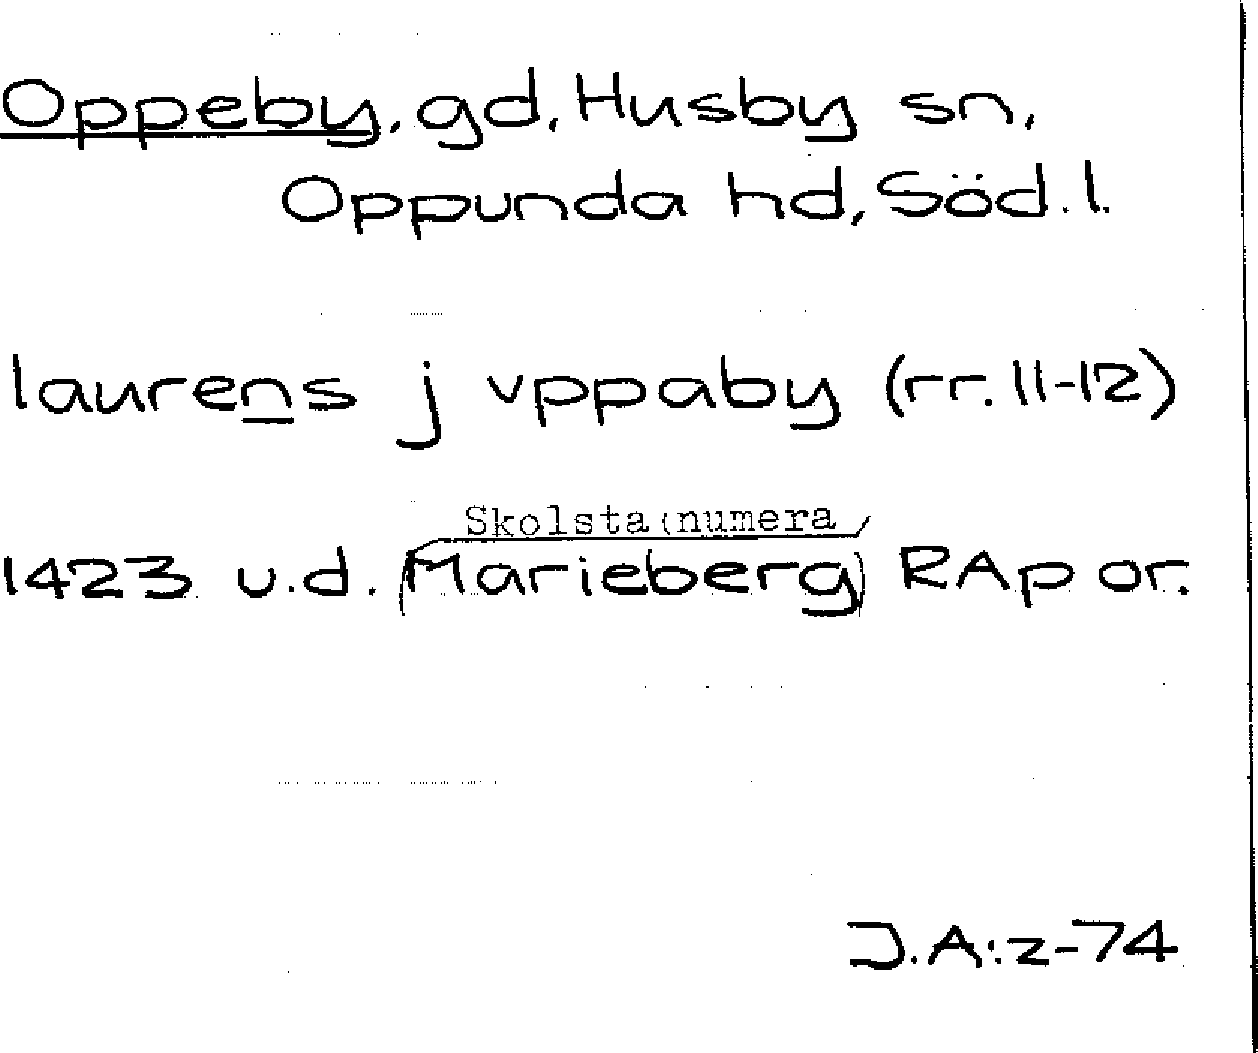 Oppeby, gd, Husby sn,
Oppunda hd, Söd. l.
laurens j vppaby (rr. 11-12)
Skolsta (numera
1423 u.d. (Marieberg) RAp or.
J.A:z-74